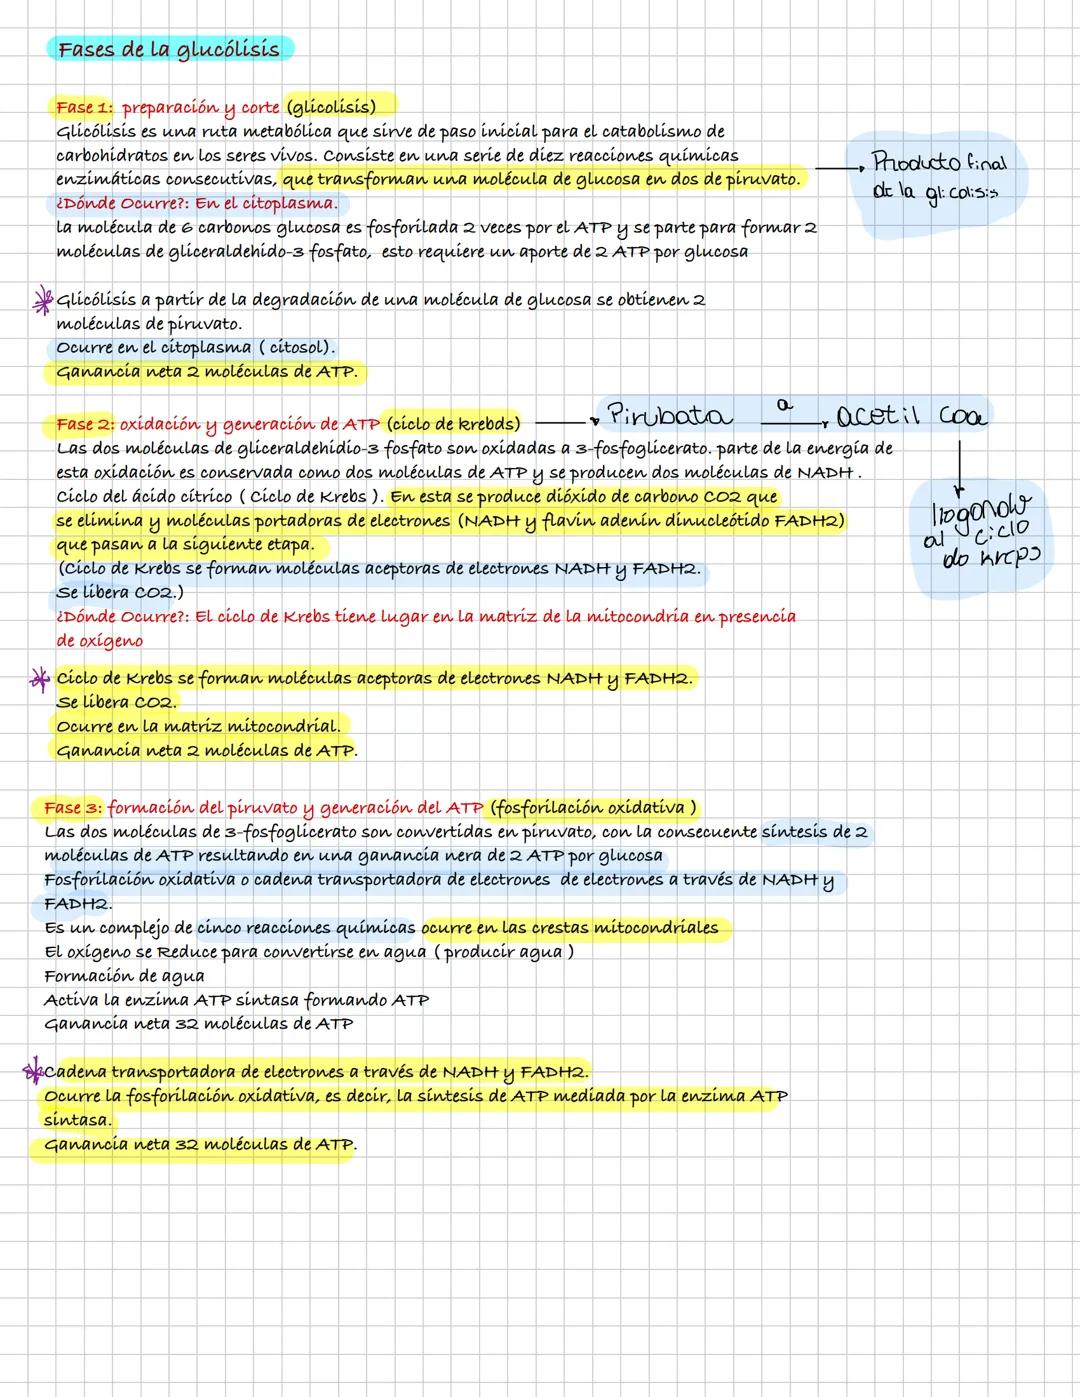 Fases de la glucólisis
Fase 1: preparación y corte (glicolisis)
Glicólisis es una ruta metabólica que sirve de paso inicial para el catabolismo de
carbohidratos en los seres vivos. Consiste en una serie de diez reacciones químicas
enzimáticas consecutivas, que transforman una molécula de glucosa en dos de piruvato.
Producto final
de la glicolisis
¿Dónde Ocurre?: En el citoplasma.
la molécula de 6 carbonos glucosa es fosforilada 2 veces por el ATP y se parte para formar 2
moléculas de gliceraldehido-3 fosfato, esto requiere un aporte de 2 ATP por glucosa
Glicólisis a partir de la degradación de una molécula de glucosa se obtienen 2
moléculas de piruvato.
Ocurre en el citoplasma ( citosol).
Ganancia neta 2 moléculas de ATP.
Fase 2: oxidación y generación de ATP (ciclo de krebds)
Pirubata a acetil coa
Las dos moléculas de gliceraldehidio-3 fosfato son oxidadas a 3-fosfoglicerato. parte de la energía de
esta oxidación es conservada como dos moléculas de ATP y se producen dos moléculas de NADH .
Ciclo del ácido cítrico ( Ciclo de Krebs ). En esta se produce dióxido de carbono CO2 que
se elimina y moléculas portadoras de electrones (NADH y flavín adenín dinucleótido FADH2)
que pasan a la siguiente etapa.
(Ciclo de Krebs se forman moléculas aceptoras de electrones NADH y FADH2.
Se libera CO2.)
al ciclo
do kreps
¿Dónde Ocurre?: El ciclo de Krebs tiene lugar en la matriz de la mitocondria en presencia
de oxígeno
Ciclo de Krebs se forman moléculas aceptoras de electrones NADH y FADH2.
Se libera CO2.
Ocurre en la matriz mitocondrial.
Ganancia neta 2 moléculas de ATP.
Fase 3: formación del piruvato y generación del ATP (fosforilación oxidativa )
Las dos moléculas de 3-fosfoglicerato son convertidas en piruvato, con la consecuente síntesis de 2
moléculas de ATP resultando en una ganancia nera de 2 ATP por glucosa
Fosforilación oxidativa o cadena transportadora de electrones de electrones a través de NADH y
FADH2.
Es un complejo de cinco reacciones químicas ocurre en las crestas mitocondriales
El oxígeno se Reduce para convertirse en agua ( producir agua )
Formación de agua
Activa la enzima ATP sintasa formando ATP
Ganancia neta 32 moléculas de ATP
Cadena transportadora de electrones a través de NADH y FADH2.
Ocurre la fosforilación oxidativa, es decir, la síntesis de ATP mediada por la enzima ATP
sintasa.
Ganancia neta 32 moléculas de ATP.